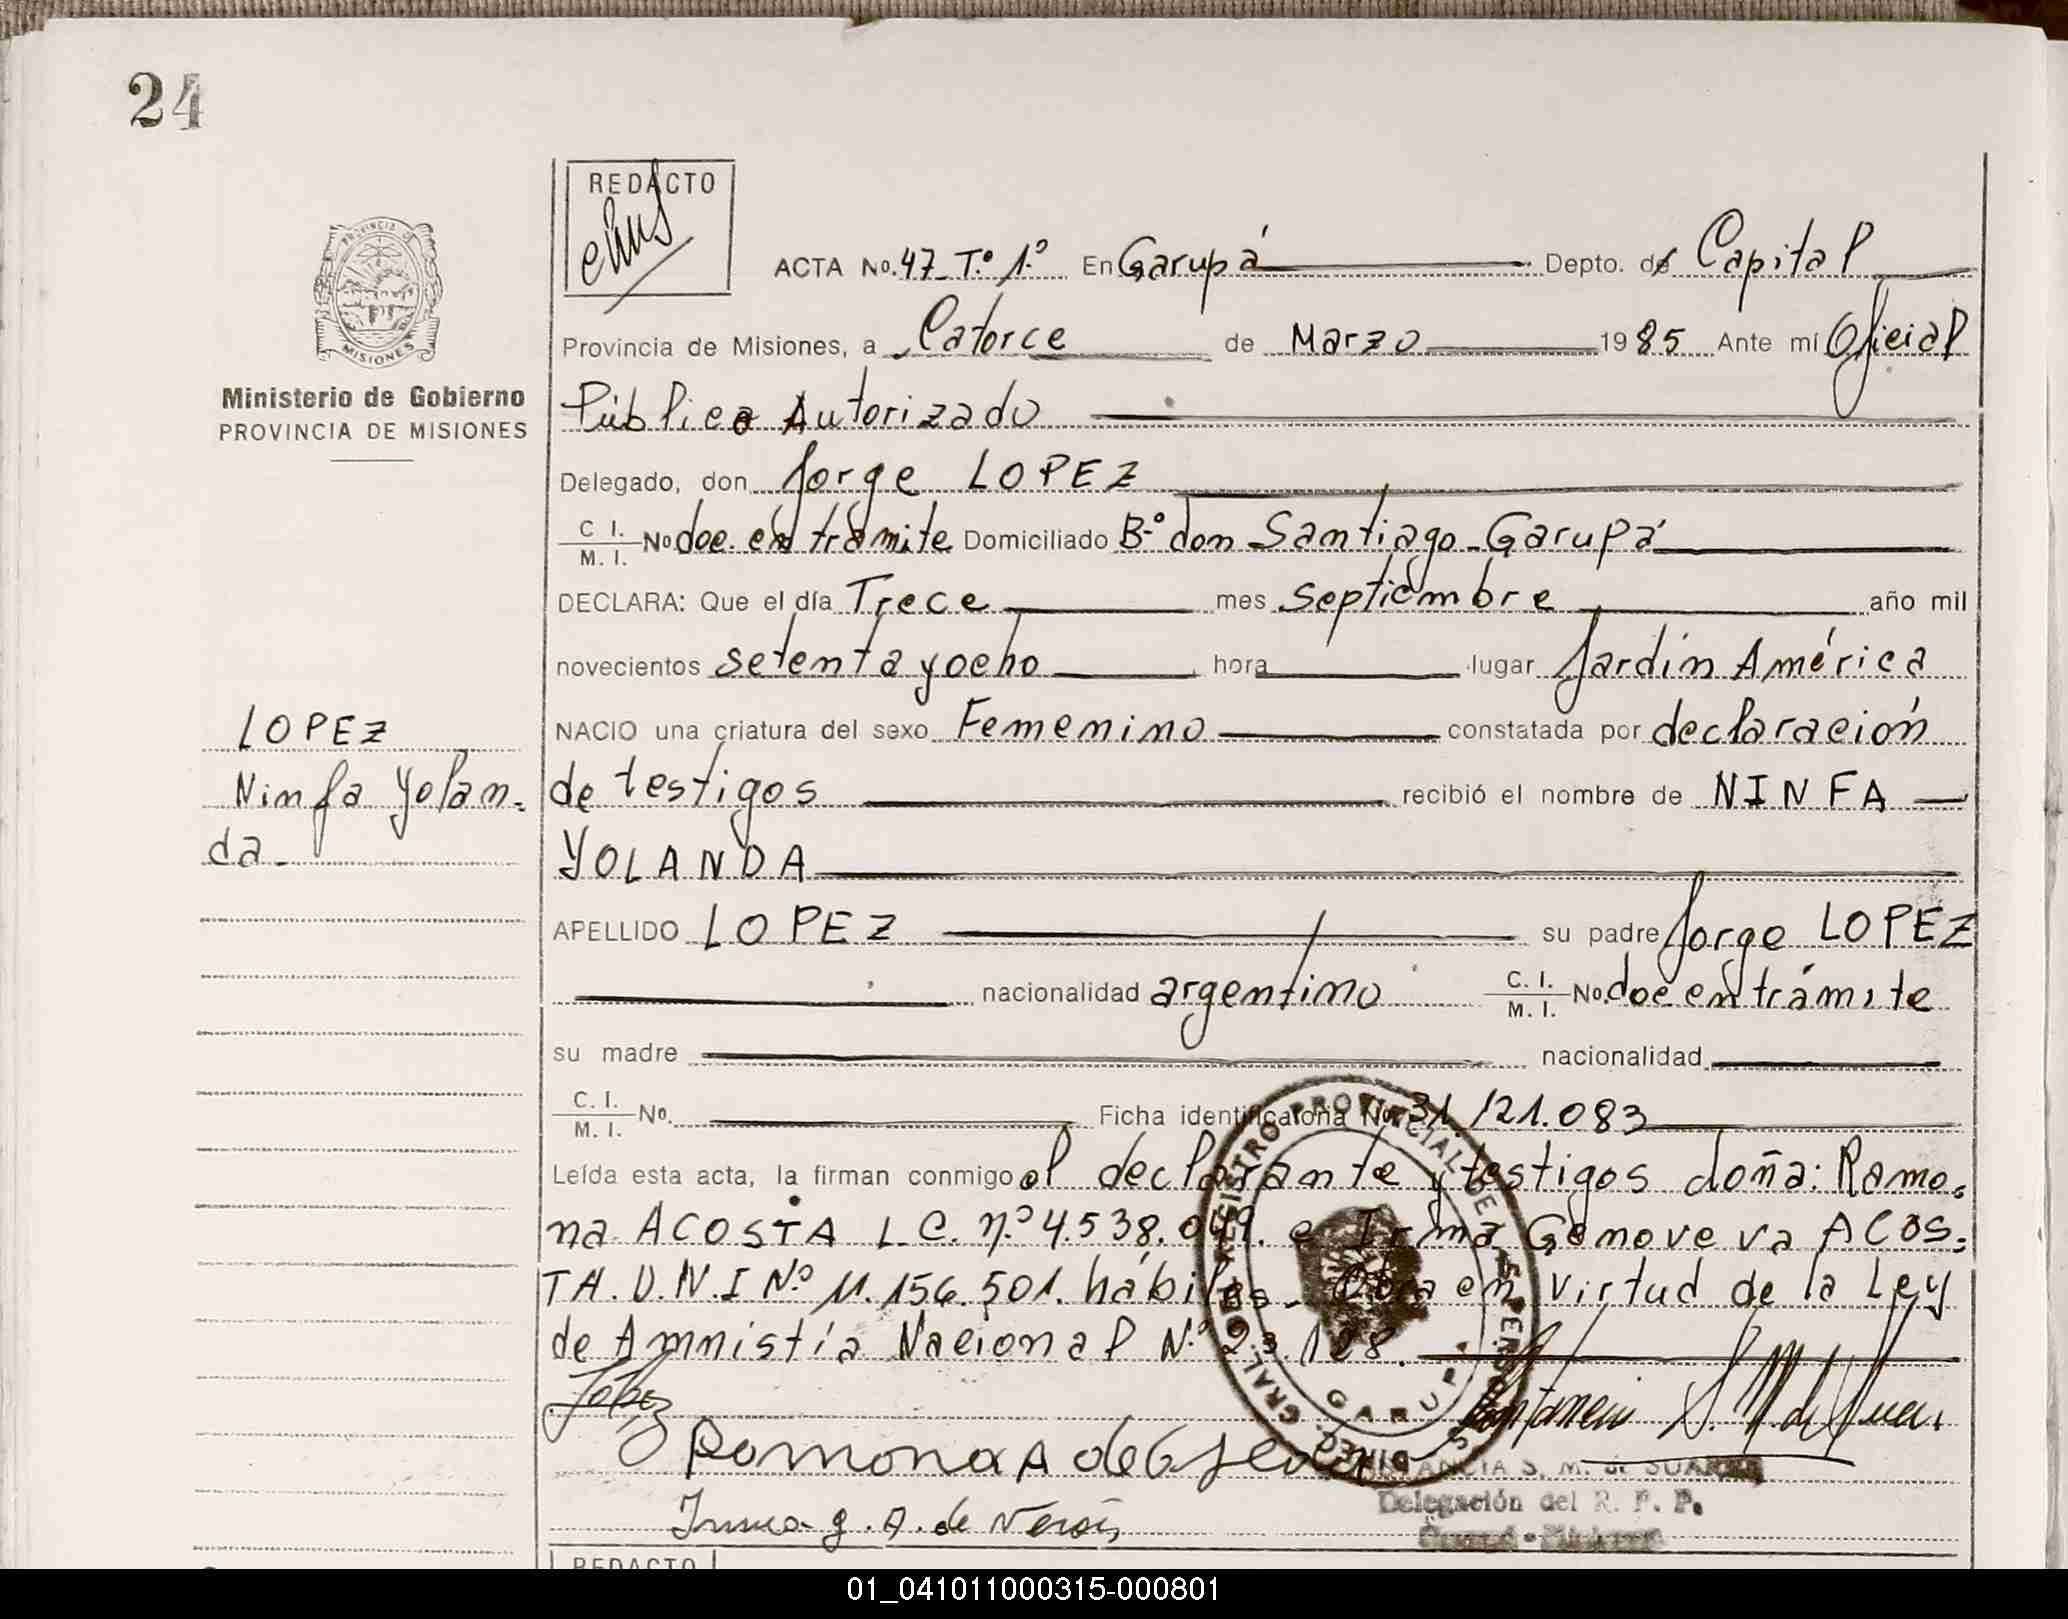 24
REDACTO
ACTA No. 47 T.º 1.º En Garupá Depto. de Capital
PROVINCIA DE
MISIONES
Provincia de Misiones, a Catorce de Marzo 1985 Ante mí Oficial
Ministerio de Gobierno
PROVINCIA DE MISIONES
Público Autorizado
Delegado, don Jorge LOPEZ
C. I.
M. I. No doc. en trámite Domiciliado Bº don Santiago - Garupá
DECLARA: Que el día Trece mes septiembre año mil
novecientos setenta y ocho hora lugar Jardín América
LOPEZ
NACIO una criatura del sexo Femenino constatada por declaración
Ninfa Yolan-
de testigos recibió el nombre de NINFA
da-
YOLANDA
APELLIDO LOPEZ su padre Jorge LOPEZ
nacionalidad argentino C. I.
M. I. No. doc en trámite
su madre nacionalidad
C. I.
M. I. No. Ficha identificatoria No 31.121.083
Leída esta acta, la firman conmigo el declarante y testigos doña: Ramo-
na ACOSTA L.C. n.º 4.538.049. e Irma Genoveva ACOS-
TA. D.N.I Nº 11.156.501. hábiles. Obra en virtud de la Ley
de Amnistía Nacional N.º 23.128.
Lopez
Ramona A de
Irma g. A. de
DIREC. GRAL. DEL REGISTRO PROVINCIAL DE LAS PERSONAS
GARUPA
S. M. de SUAREZ
Delegación del R. P. P.
REDACTO
01_041011000315-000801